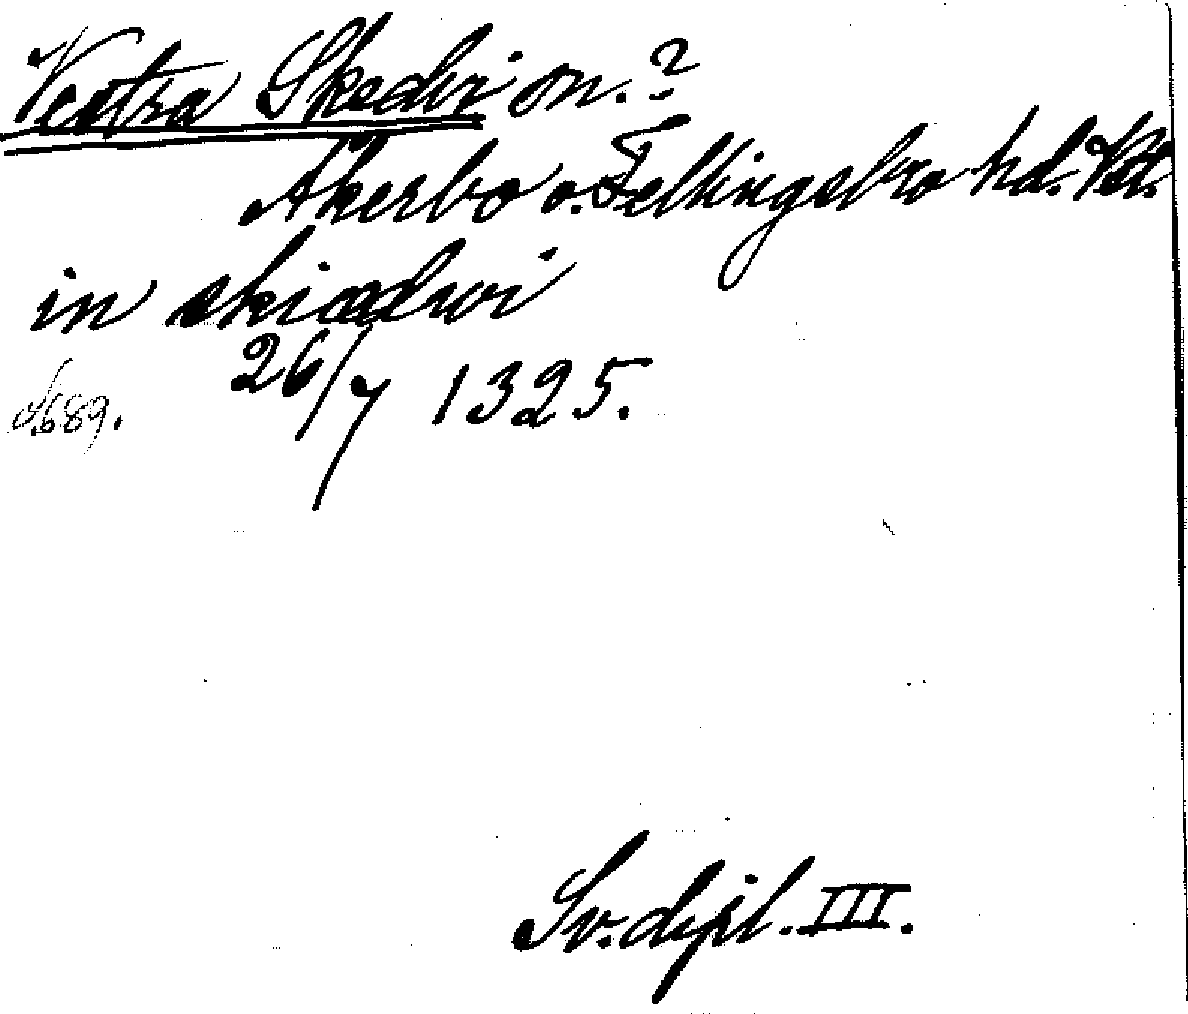 Vestra Skedvi sn.?
Åkerbo o. Fellingsbro hd. Vstm.
in skiædwi
26/7 1325.
s. 689.
Sv. dipl. III.